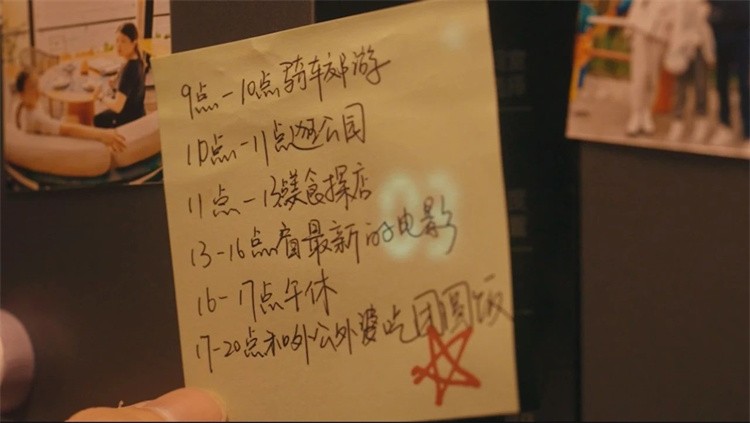 9点-10点骑车郊游
10点-11点逛公园
11点-13点美食探店
13-16点看最新的电影
16-17点午休
17-20点和外公外婆吃团圆饭